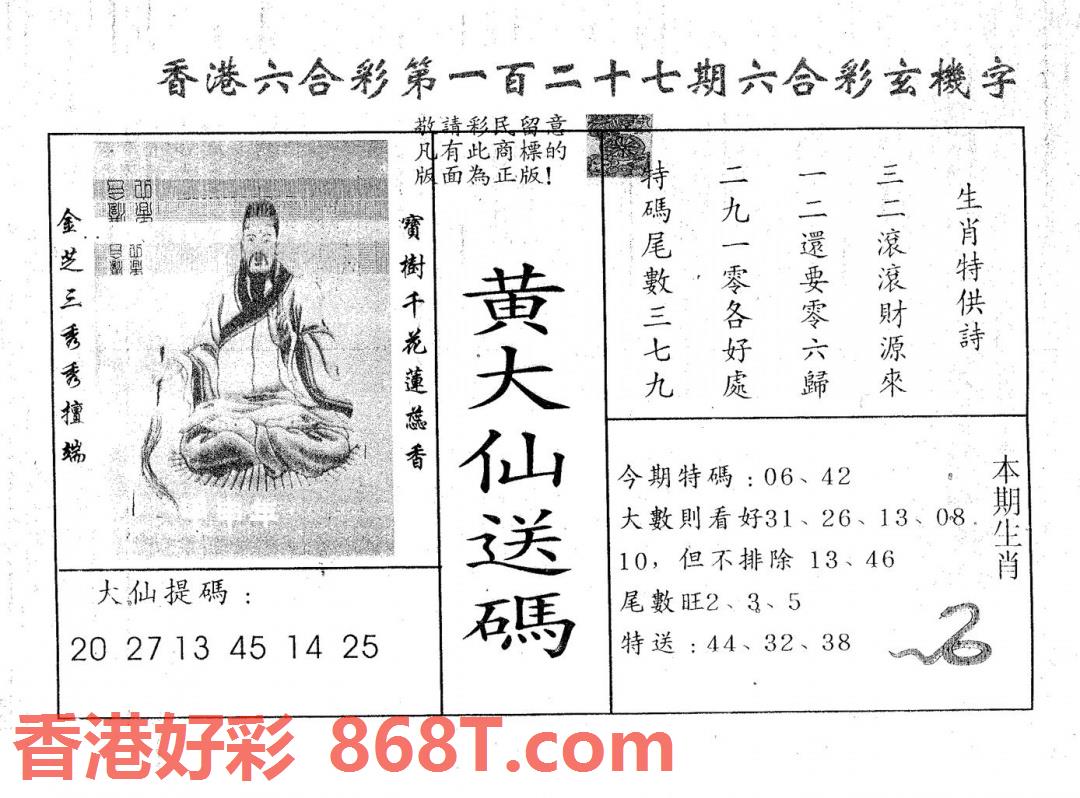 香港六合彩第一百二十七期六合彩玄機字
敬請彩民留意
凡有此商標的
版面為正版!
金芝三秀秀擅端
寶樹千花蓮蕊香
大仙提碼:
20 27 13 45 14 25
黄大仙送碼
生肖特供詩
三二滾滾財源來
一二還要零六歸
二九一零各好處
特碼尾數三七九
今期特碼:06、42
大數則看好31、26、13、08
10,但不排除 13、46
尾數旺2、3、5
特送:44、32、38
本期生肖
香港好彩 868T.com